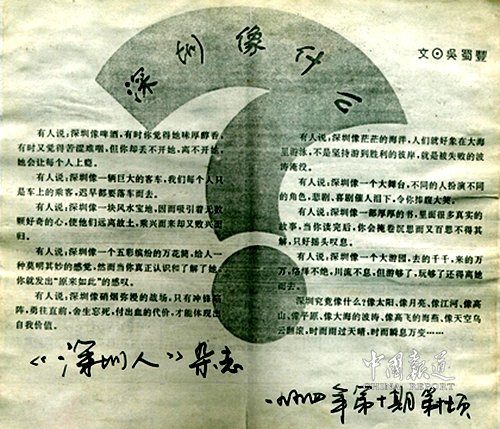 深圳像什么
文⊙吴蜀丰
有人说，深圳像啤酒，有时你觉得她味厚醇香，
有时又觉得苦涩难咽，但你却丢不开她，离不开她，
她会让每个人上瘾。
有人说，深圳像一辆巨大的客车，我们每个人只
是车上的乘客，迟早都要落车而去。
有人说，深圳像一块风水宝地，因而吸引着无数
颗好奇的心，使他们远离故土，乘兴而来却又败兴而
归。
有人说，深圳像一个五彩缤纷的万花筒，给人一
种莫明其妙的感觉，然而当你真正认识和了解了她，
你就发出“原来如此”的感叹。
有人说，深圳像硝烟弥漫的战场，只有冲锋陷
阵，勇往直前，舍生忘死，付出血的代价，才能体现出
自我价值。
有人说，深圳像茫茫的海洋，人们就好象在大海
里游泳，不是坚持游到胜利的彼岸，就是被失败的波
涛淹没。
有人说，深圳像一个大舞台，不同的人扮演不同
的角色，悲剧、喜剧催人泪下，令你捧腹大笑。
有人说，深圳像一部厚厚的书，里面很多真实的
故事，当你读完后，你会掩卷沉思而又百思不得其
解，只好摇头叹息。
有人说，深圳像一个大游园，去的千千，来的万
万，络绎不绝，川流不息，但游够了，玩够了还得离她
而去。
深圳究竟像什么？像太阳、像月亮、像江河、像高
山、像平原、像大海的波涛、像高飞的海燕、像天空乌
云翻滚，时而雨过天晴，时而瞬息万变……
《深圳人》杂志
一九九四年第十期第十页
中国报道
CHINA REPORT